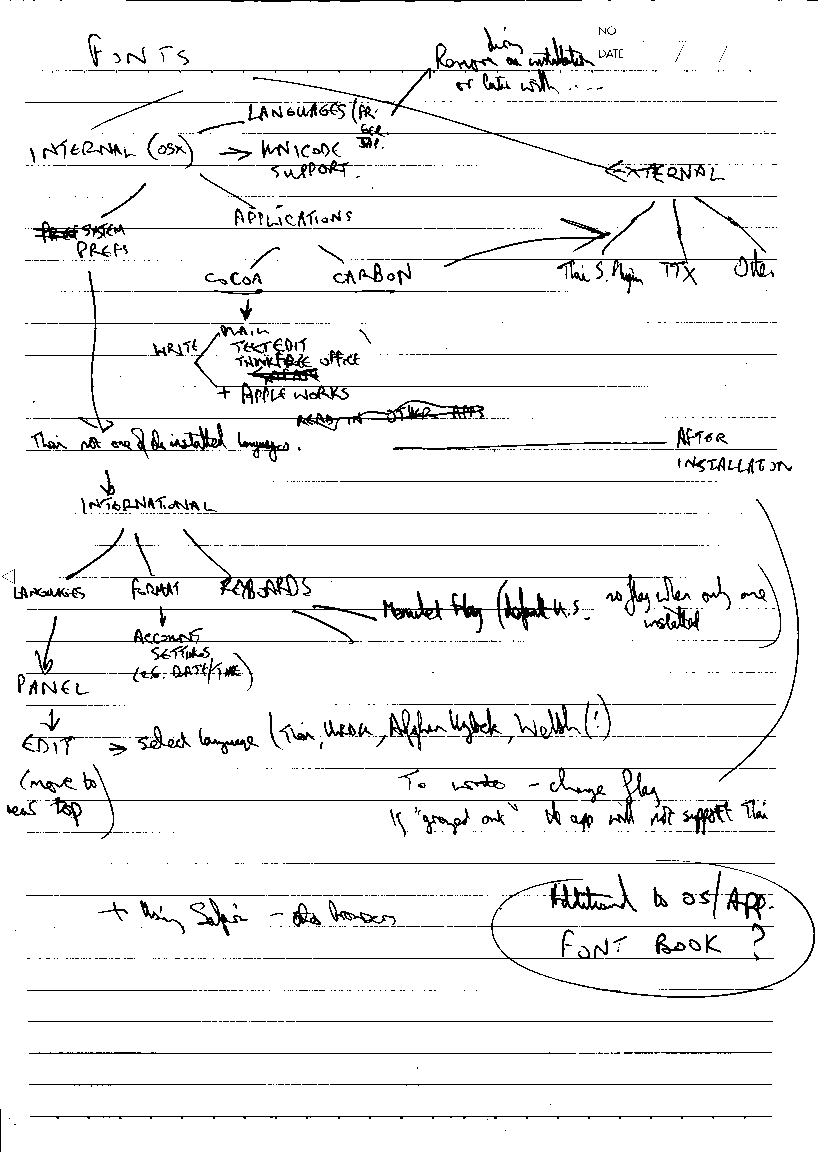 NO
DATE / /
FONTS
Remove on installation
or later with ....
LANGUAGES (FR.
GER.
JAP.
INTERNAL (OSX) → UNICODE
SUPPORT.
EXTERNAL
APPLICATIONS
SYSTEM
PREFS
COCOA
CARBON
Thai S. Plugin
TTX
Other
MAIL
WRITE
TEXTEDIT
THINKFREE OFFICE
+ APPLEWORKS
READ IN OTHER APPS
Thai not one of the installed languages.
AFTER
INSTALLATION
INTERNATIONAL
LANGUAGES
FORMAT
KEYBOARDS
Menulet flag (default U.S. no flag when only one
installed)
ACCOUNT
SETTINGS
(e.g. DATE/TIME)
PANEL
EDIT → Select language (Thai, Urdu, Afghan Uzbek, Welsh (!)
(move to
near top)
To write - change flag
If "greyed out" the app will not support Thai
+ Using Safari - other browsers
Additional to OS/App.
FONT BOOK ?